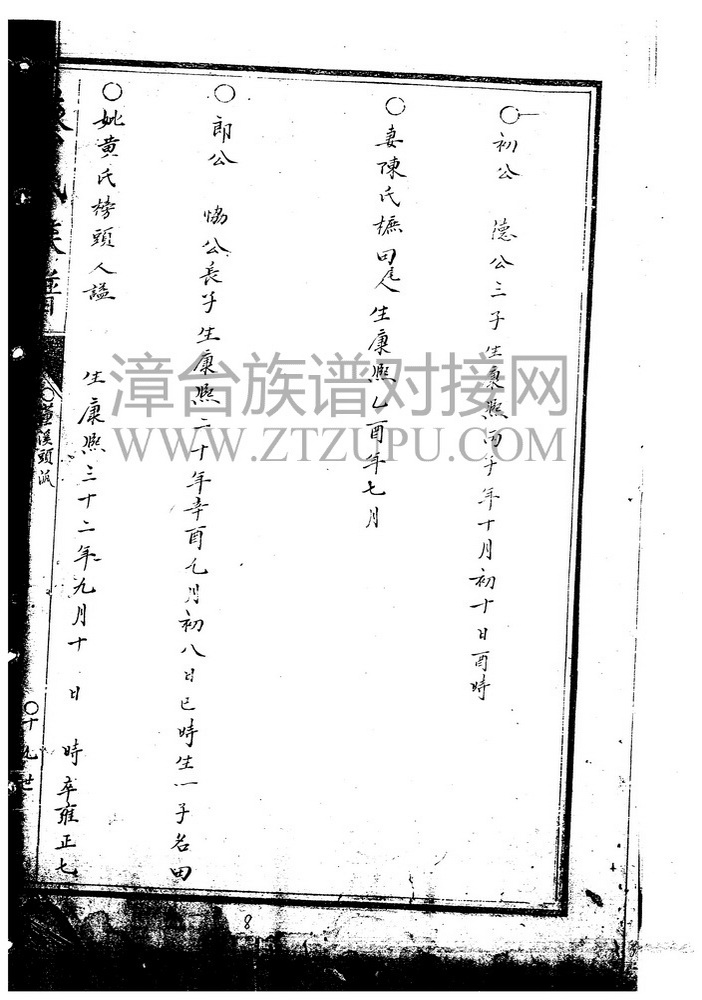 ○初公　德公三子生康熙丙子年十月初十日酉時
○妻陳氏樜田尾人生康熙乙酉年七月
○郎公　恊公長子生康熙二十年辛酉七月初八日巳時生一子名田
○妣黄氏榜頭人謚　生康熙三十二年九月十　日　時卒雍正七
氏族譜
○溪頭派
○十九世
8
漳台族谱对接网
WWW.ZTZUPU.COM